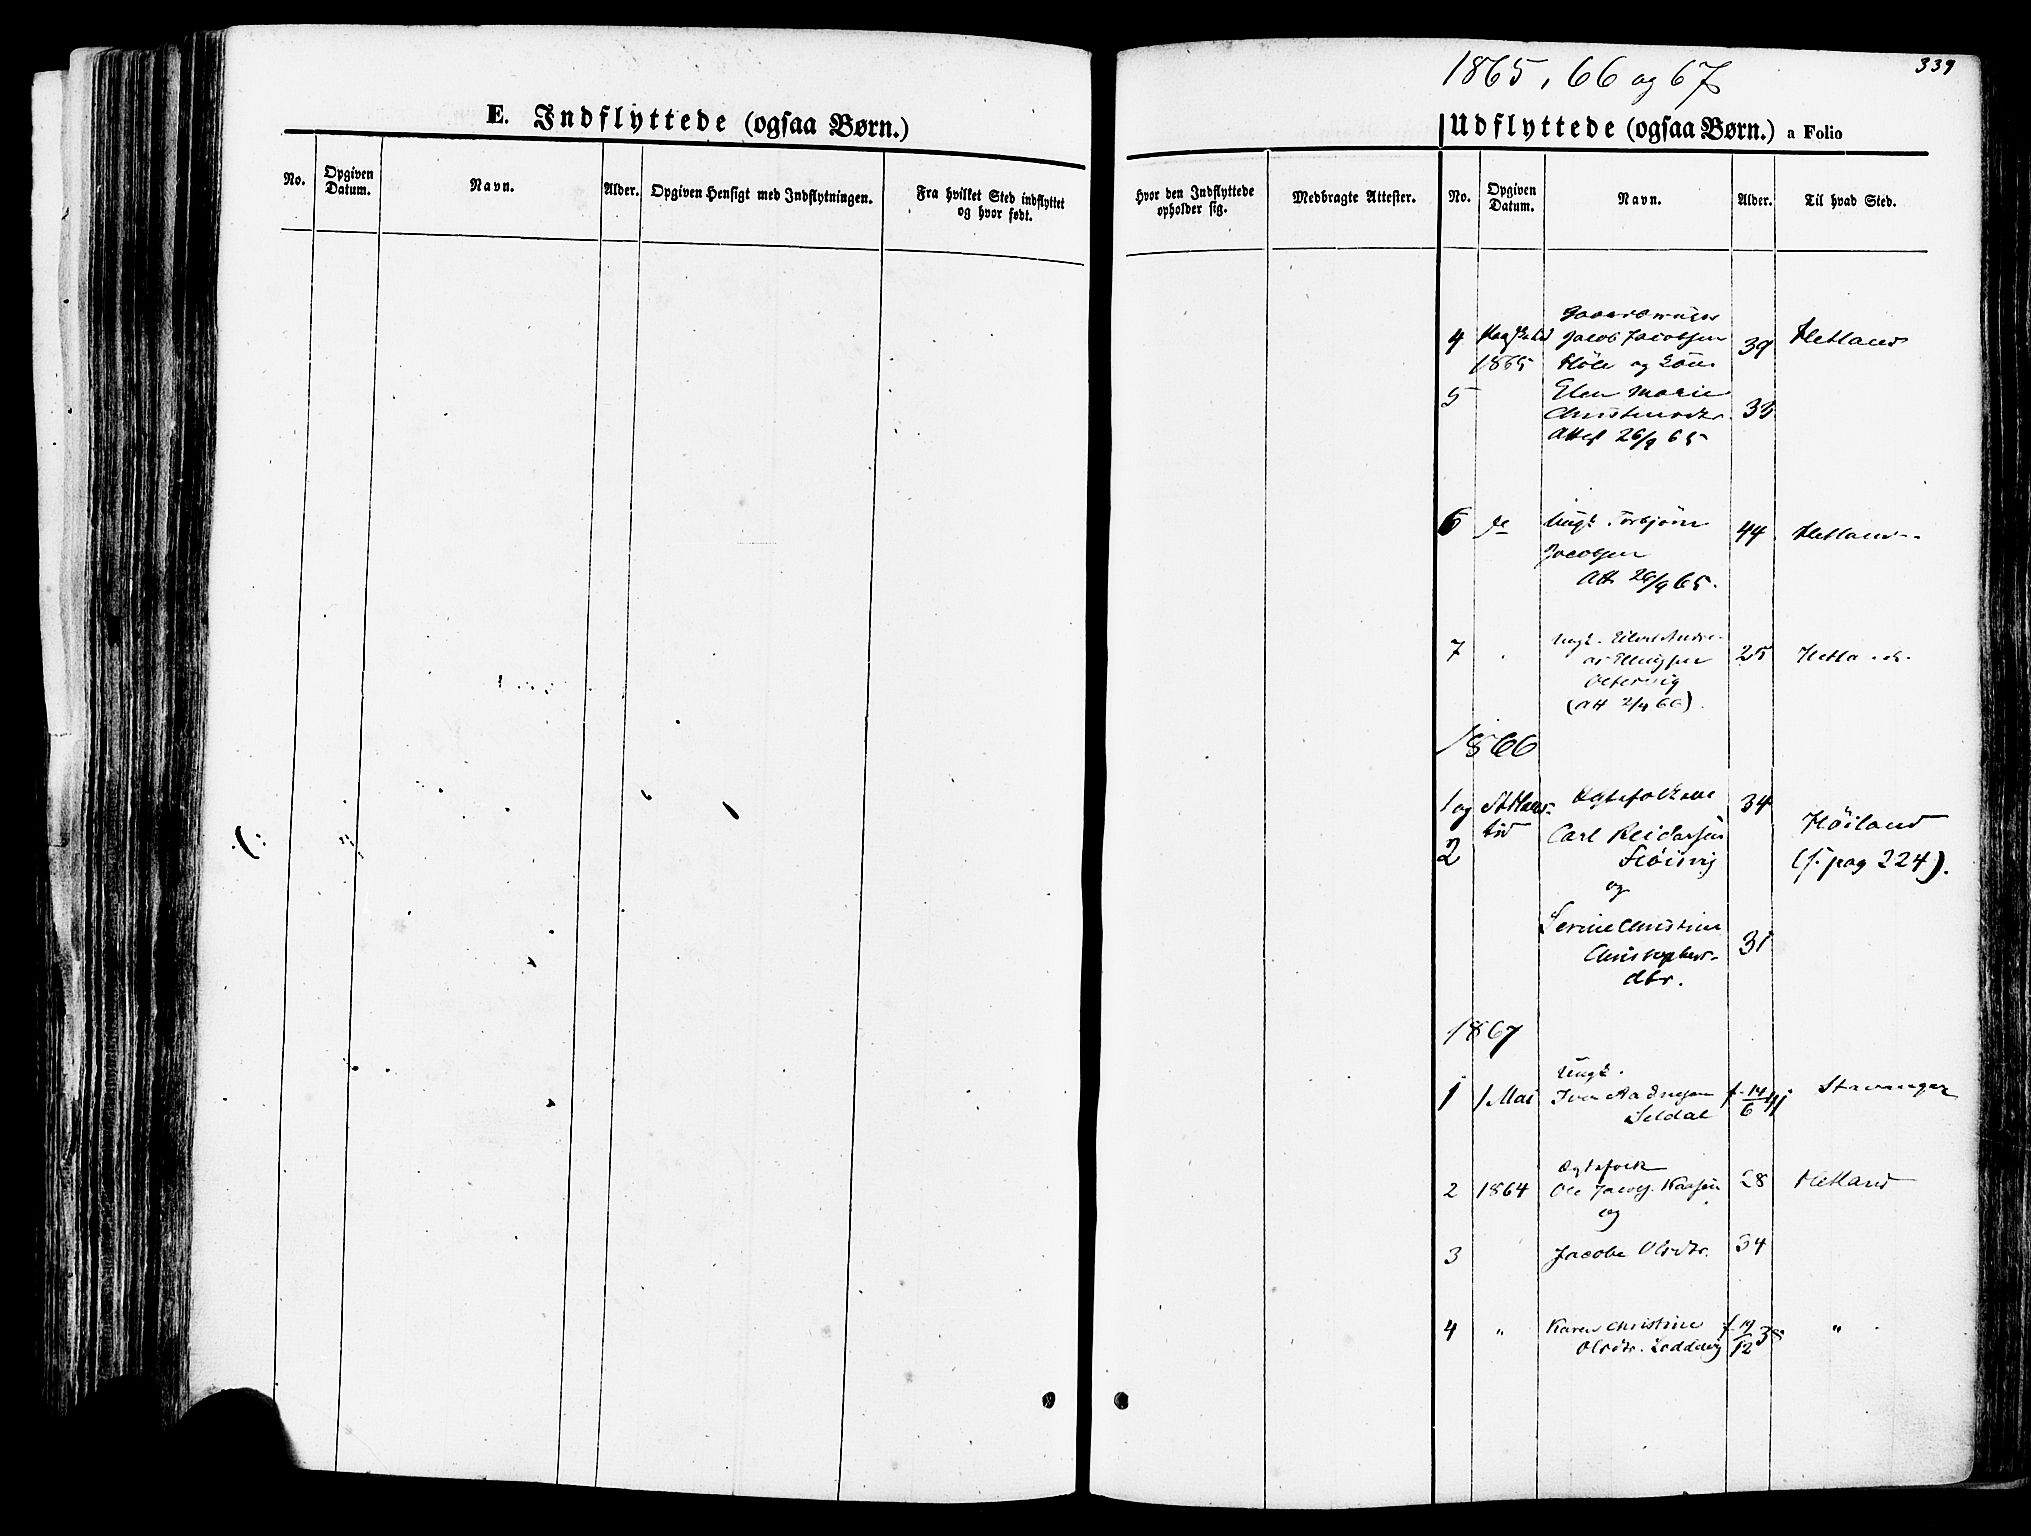 1865, 66 og 67
339
E. Indflyttede (ogsaa Børn.)
Udflyttede (ogsaa Børn.) a Folio
No.
Opgiven Datum.
Navn.
Alder.
Opgiven Hensigt med Indflytningen.
Fra hvilket Sted indflyttet og hvor født.
Hvor den Indflyttede opholder sig.
Medbragte Attester.
No.
Opgiven Datum.
Navn.
Alder.
Til hvad Sted.
4 Jacob Jacobsen 39 Hetland
1865 Høle og
5 Elen Marie
33
Attest 26/9 65
6 Ungk. Torbjørn 44 Hetland
Jacobsen
Att 26/9 65.
7 Ungk. 25 Hetland
(Att 2/4 66).
1866
1 og Ægtefolkene 34
tid Carl Reidarsen Høiland
2 (s. pag 224).
og
Serine Christine
Christophers- 31
dtr.
1867
Ungk.
1 1 Mai Iver Aadnesen f. 14/6 41 Stavanger
Seldal
Ægtefolk
2 1864 Ole Jacobs. 28 Hetland
og
3 Jacobe Olsdtr. 34
4 " Karen Christine f. 19/12 38 "
Olsdtr.